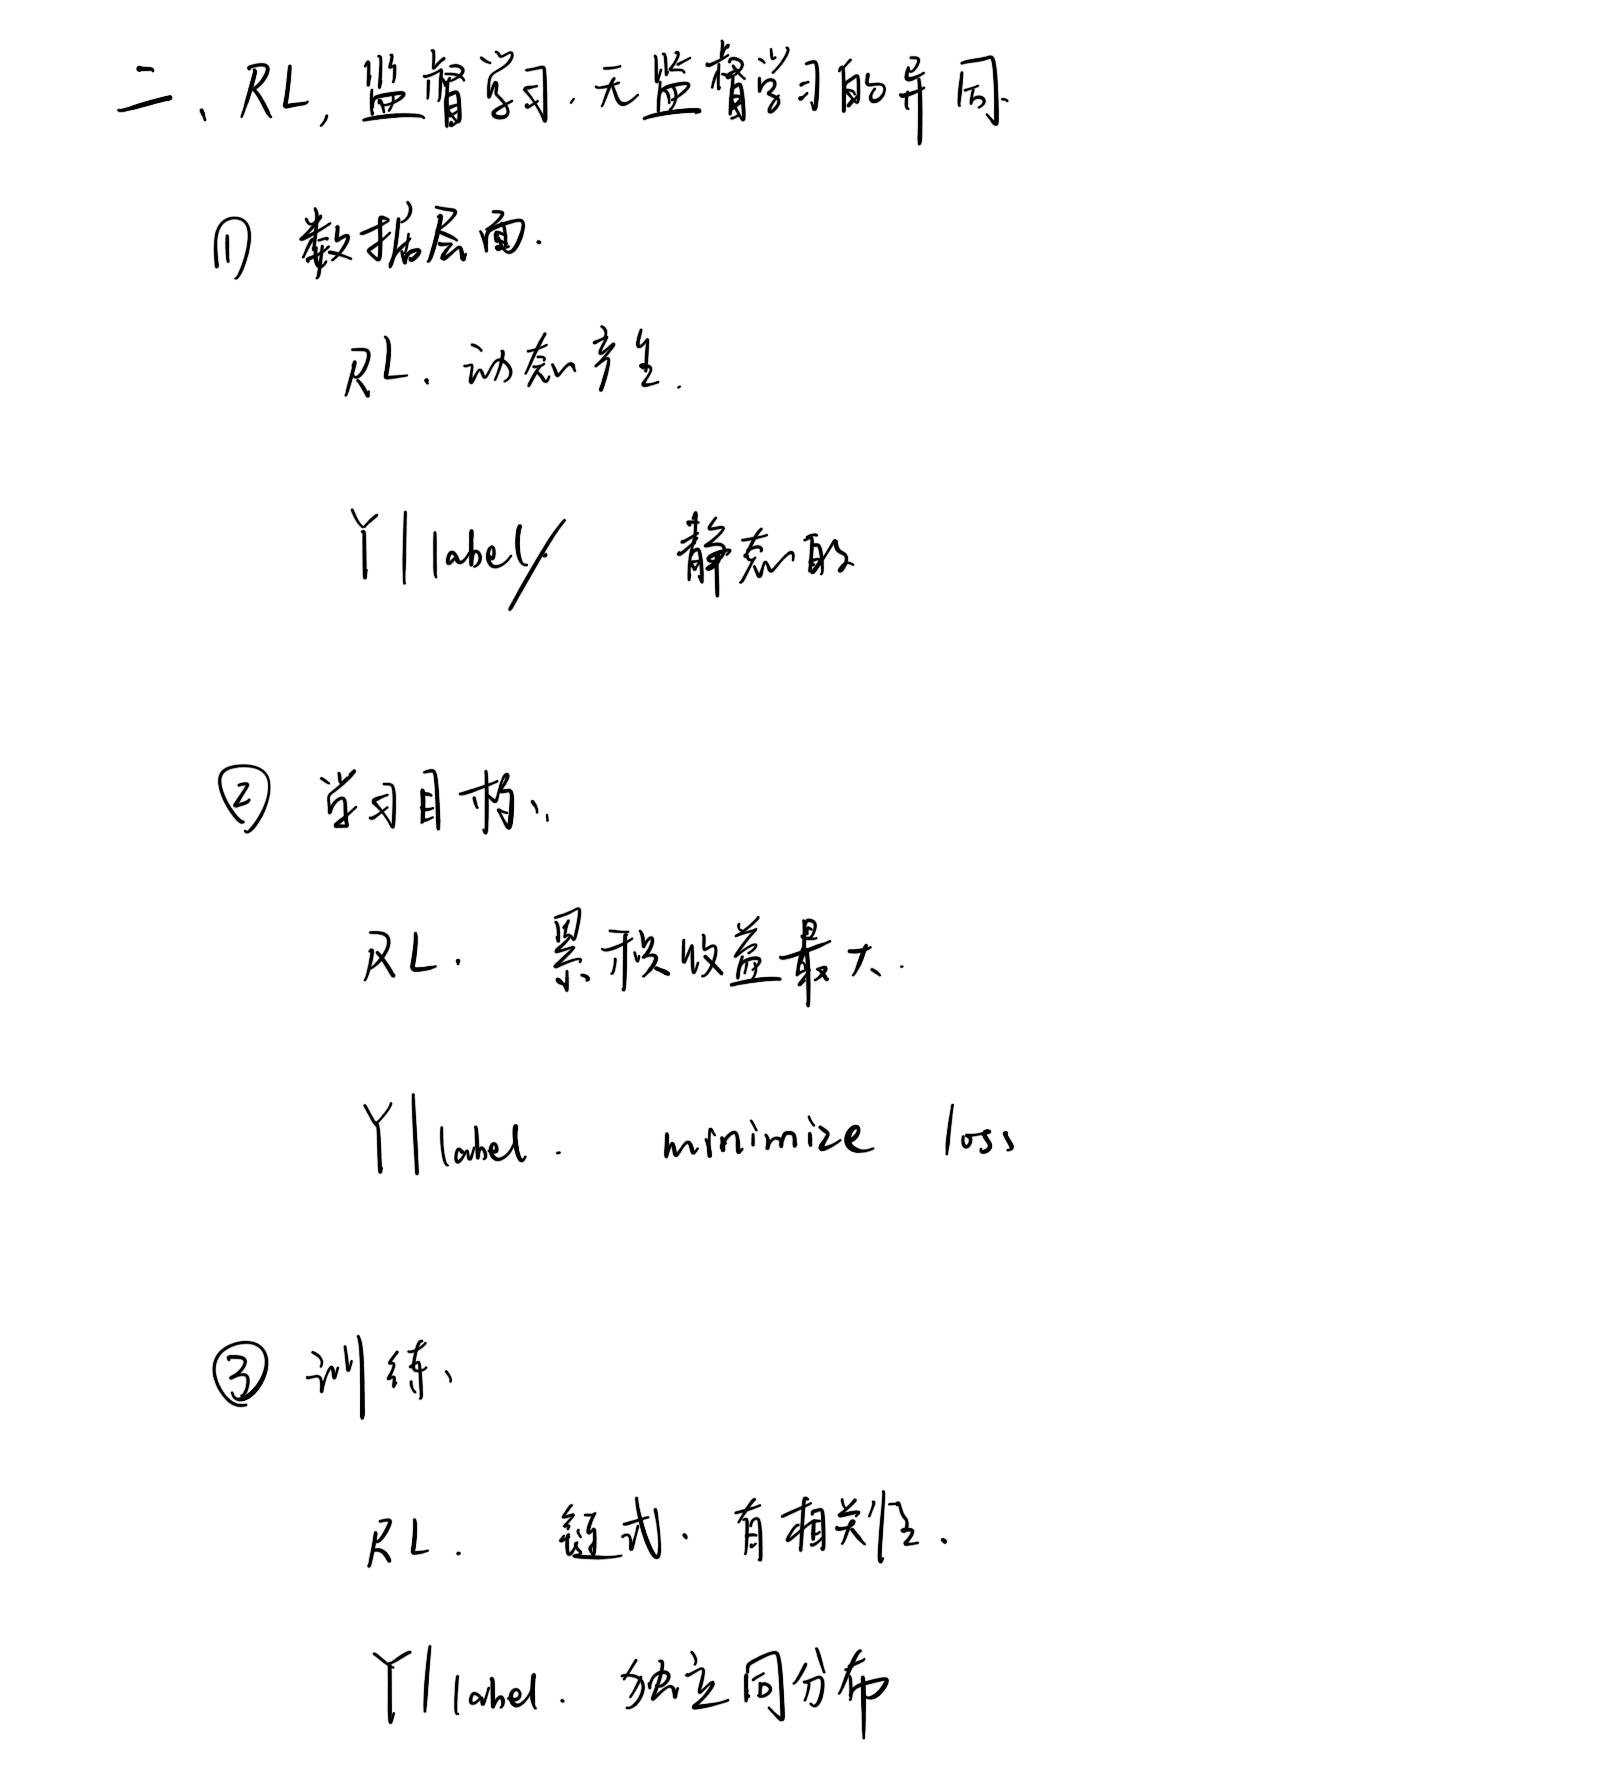 二、RL,监督学习.无监督学习的异同.
① 数据层面.
RL. 动态产生.
Y|label/ 静态的
② 学习目标、
RL. 累积收益最大.
Y|label. minimize loss
③ 训练、
RL. 链式. 有相关性.
Y|label. 独立同分布